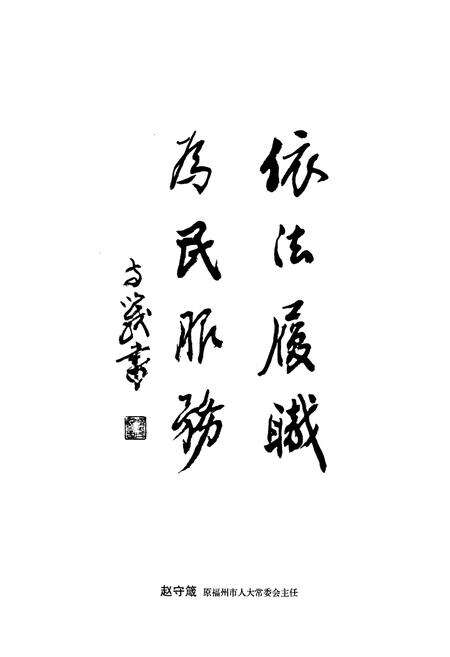 依法履職
為民服務
守箴書
赵守箴 原福州市人大常委会主任